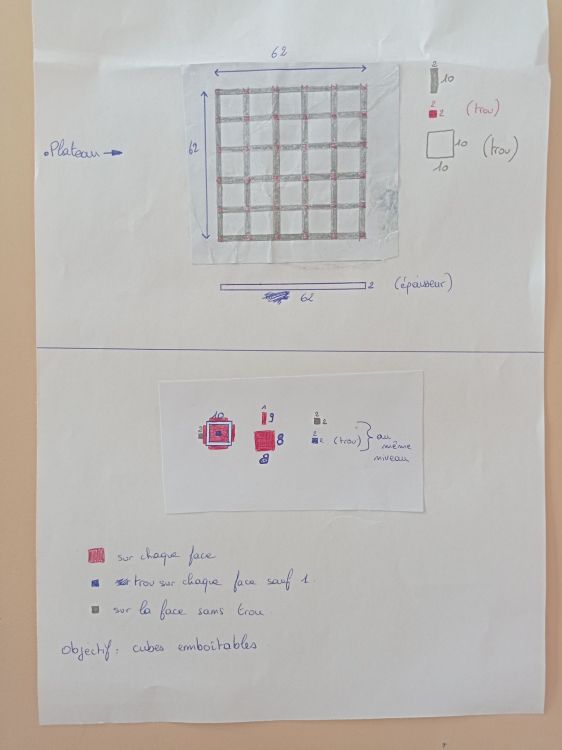 62
2
10
2
2 (trou)
.Plateau →
62
10
10
(trou)
2 (épaisseur)
62
10
2
1
9
8
8
2
2
2
2 (trou)
au
même
niveau
sur chaque face
trou sur chaque face sauf 1.
sur la face sans trou
Objectif: cubes emboîtables